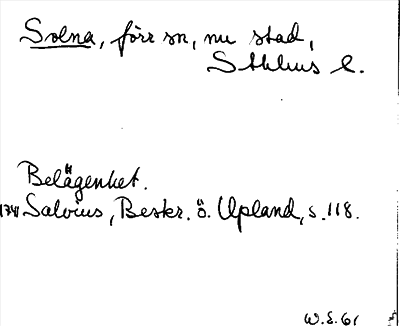 Solna, förr sn, nu stad,
Sthlms l.
Belägenhet.
1741 Salvius, Beskr. ö. Upland, s. 118.
W.E. 61